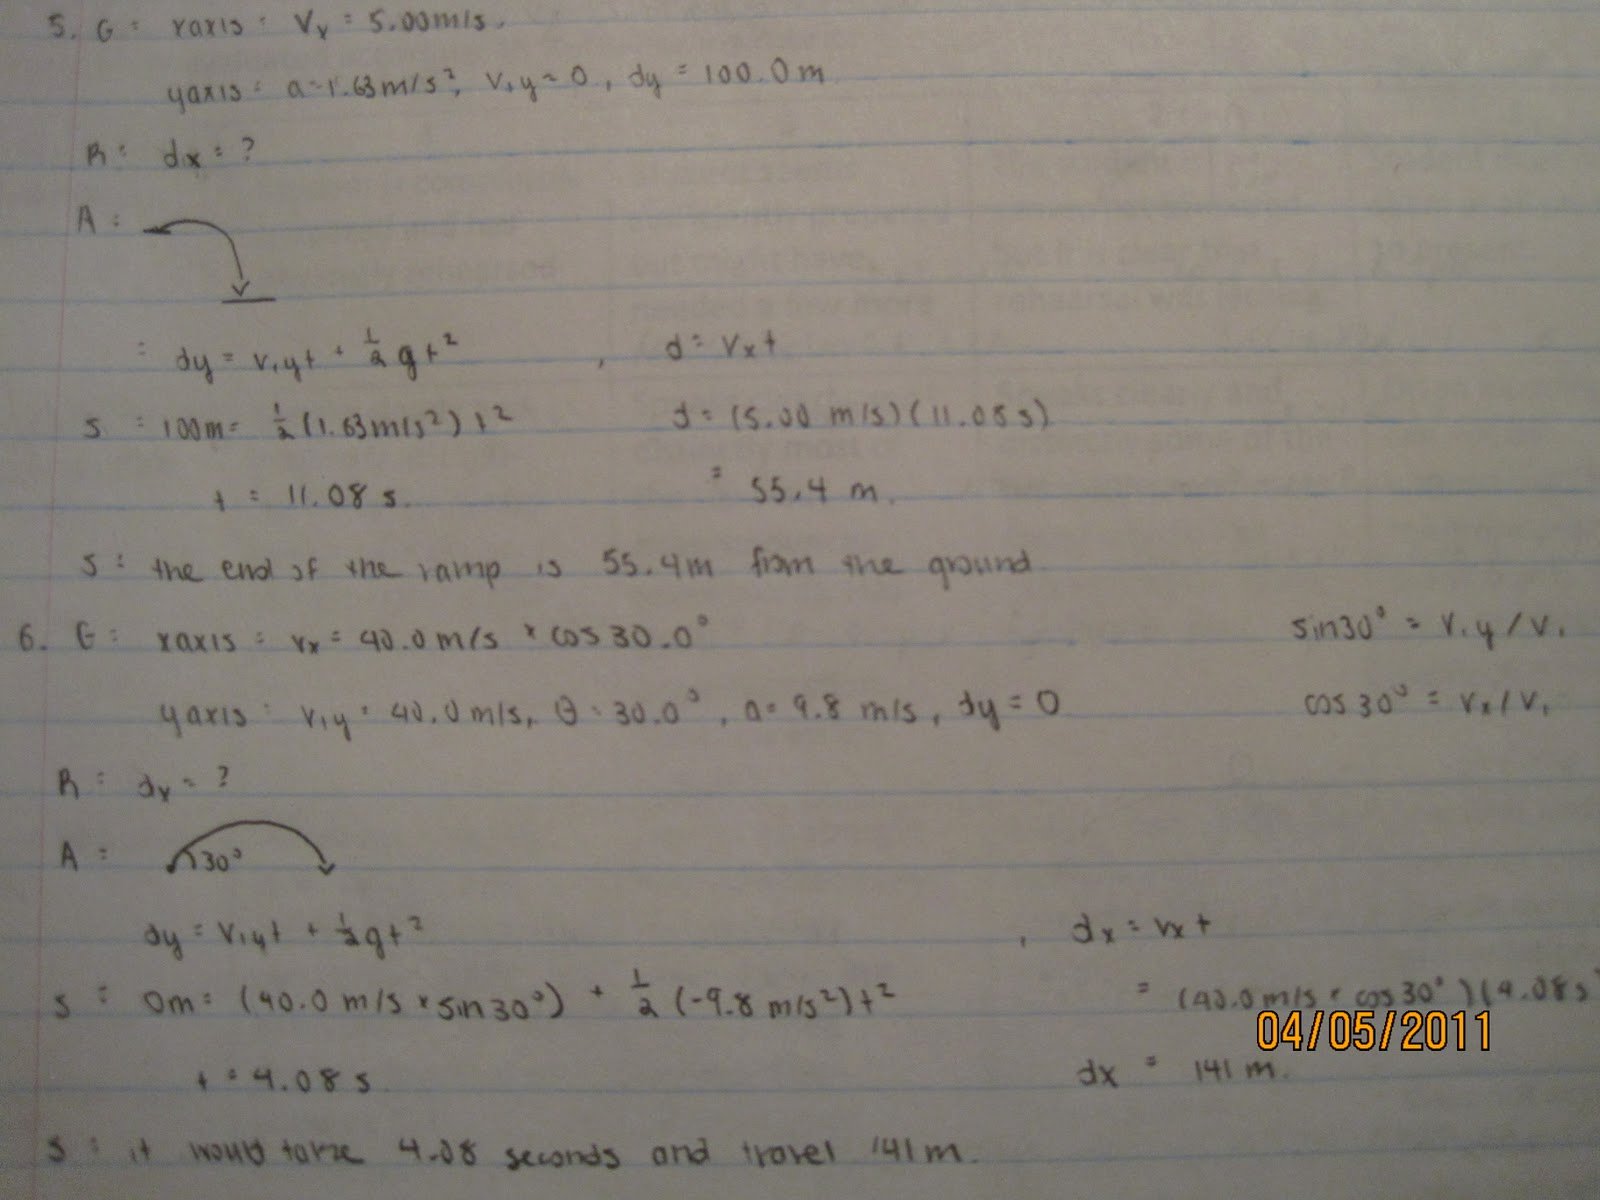 5. G: xaxis: Vx = 5.00m/s.
yaxis: a = 1.63m/s², V1y = 0, dy = 100.0m
R: dx = ?
A:
: dy = V1yt + 1/2 gt² , d = Vxt
S : 100m = 1/2 (1.63m/s²) t² d = (5.00 m/s)(11.08s)
t = 11.08 s. = 55.4 m.
S: the end of the ramp is 55.4m from the ground
6. G: xaxis: Vx = 40.0m/s × cos30.0° sin30° = V1y/V1
yaxis: V1y = 40.0m/s, θ = 30.0°, a = 9.8 m/s, dy = 0 cos30° = Vx/V1
R: dx = ?
A: 30°
dy = V1yt + 1/2gt² , dx = Vxt
S : 0m = (40.0 m/s × sin30°) + 1/2 (-9.8 m/s²)t² = (40.0m/s × cos30°)(4.08s
04/05/2011
t = 4.08s dx = 141 m.
S : it would take 4.08 seconds and travel 141m.